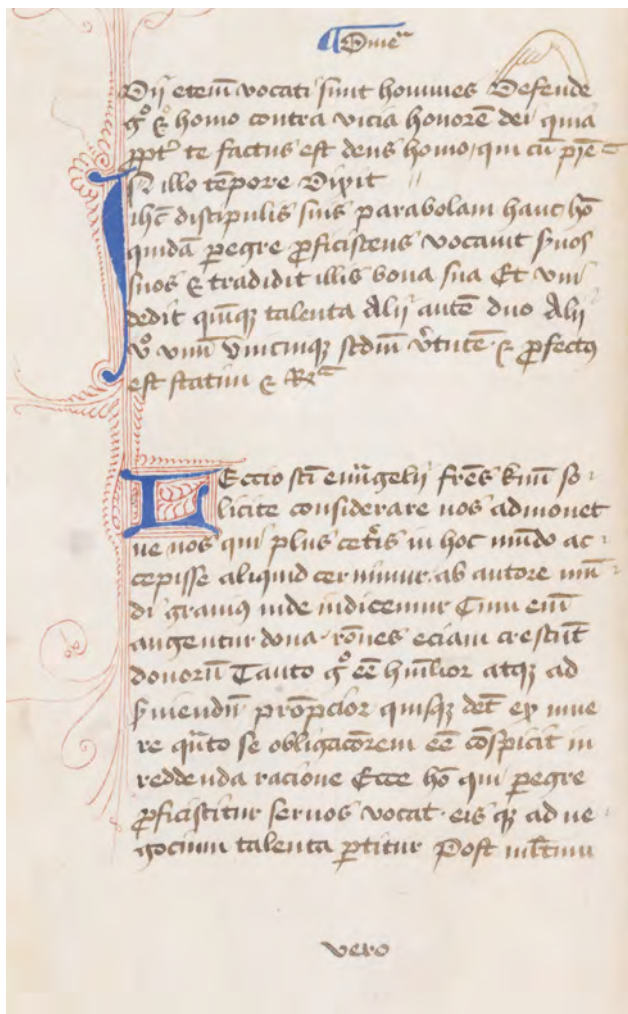 Dn̄ic̄
Dij eteniī vocati sunt homines Defende
gͦ ⁊ o homo contra vicia honorē dei quia
ꝓpt̄ te factus est deus homo, qui cū pr̄e ⁊c̄
In illo tēpore Dixit
ihc̄ discipulis suis parabolam hanc hō
quidā peregre ꝓficiscens vocauit s̓uos
suos ⁊ tradidit illis bona sua Et vni
dedit quinqꝫ talenta Alij autē duo Alij
vͦ vnū vnicuiqꝫ scdm̄ v̓tutē ⁊ ꝓfectꝰ
est statim ⁊ Re
LEccio sc̄i ewāgelij fr̄es km̄i so-
licite considerare nos admonet
ne nos qui plus cet̓is in hoc mūdo ac-
cepisse aliquid cernimur. ab autore mū-
di grauiꝰ inde iudicemur Cum em̄
augentur dona. rōnes eciam crescūt
donorū Tanto gͦ eē hūilior atqꝫ ad
s̓uiendū prōpcior quisqꝫ det̄ ex mune
re qn̄to se obligacōrem eē cōspicit in
reddenda racione Ecce hō qui peregre
ꝓficiscitur seruos vocat. eis qꝫ ad ne-
gocium talenta ꝑtitur Post mltm̄
vero